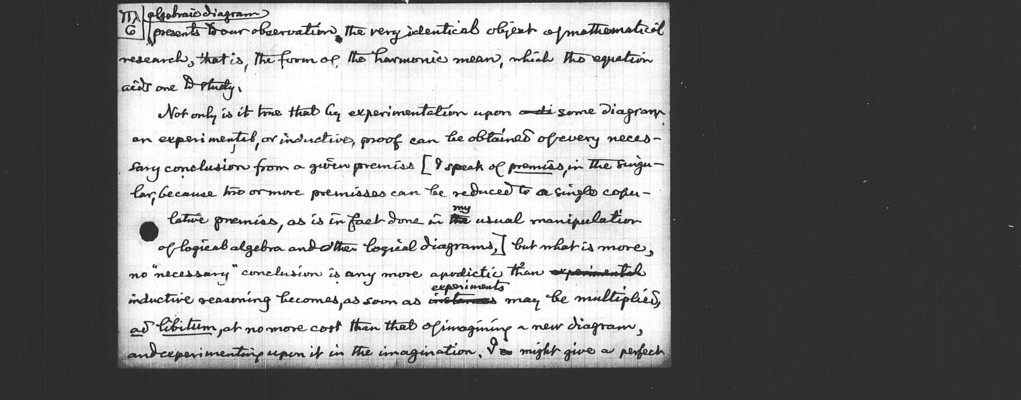 M
6
algebraic diagram
presents to our observation, the very identical object of mathematical
research, that is, the form of the harmonic mean, which the equation
aids one to study.
Not only is it true that by experimentation upon some diagram
an experimental, or inductive, proof can be obtained of every neces-
sary conclusion from a given premiss [I speak of premiss, in the singu-
lar, because two or more premisses can be reduced to a single copu-
lative premiss, as is in fact done in the my usual manipulation
of logical algebra and other logical diagrams,] but what is more,
no "necessary" conclusion is any more apodictic than experimental
inductive reasoning becomes, as soon as instances experiments may be multiplied,
ad libitum, at no more cost than that of imagining a new diagram,
and experimenting upon it in the imagination. I might give a perfect